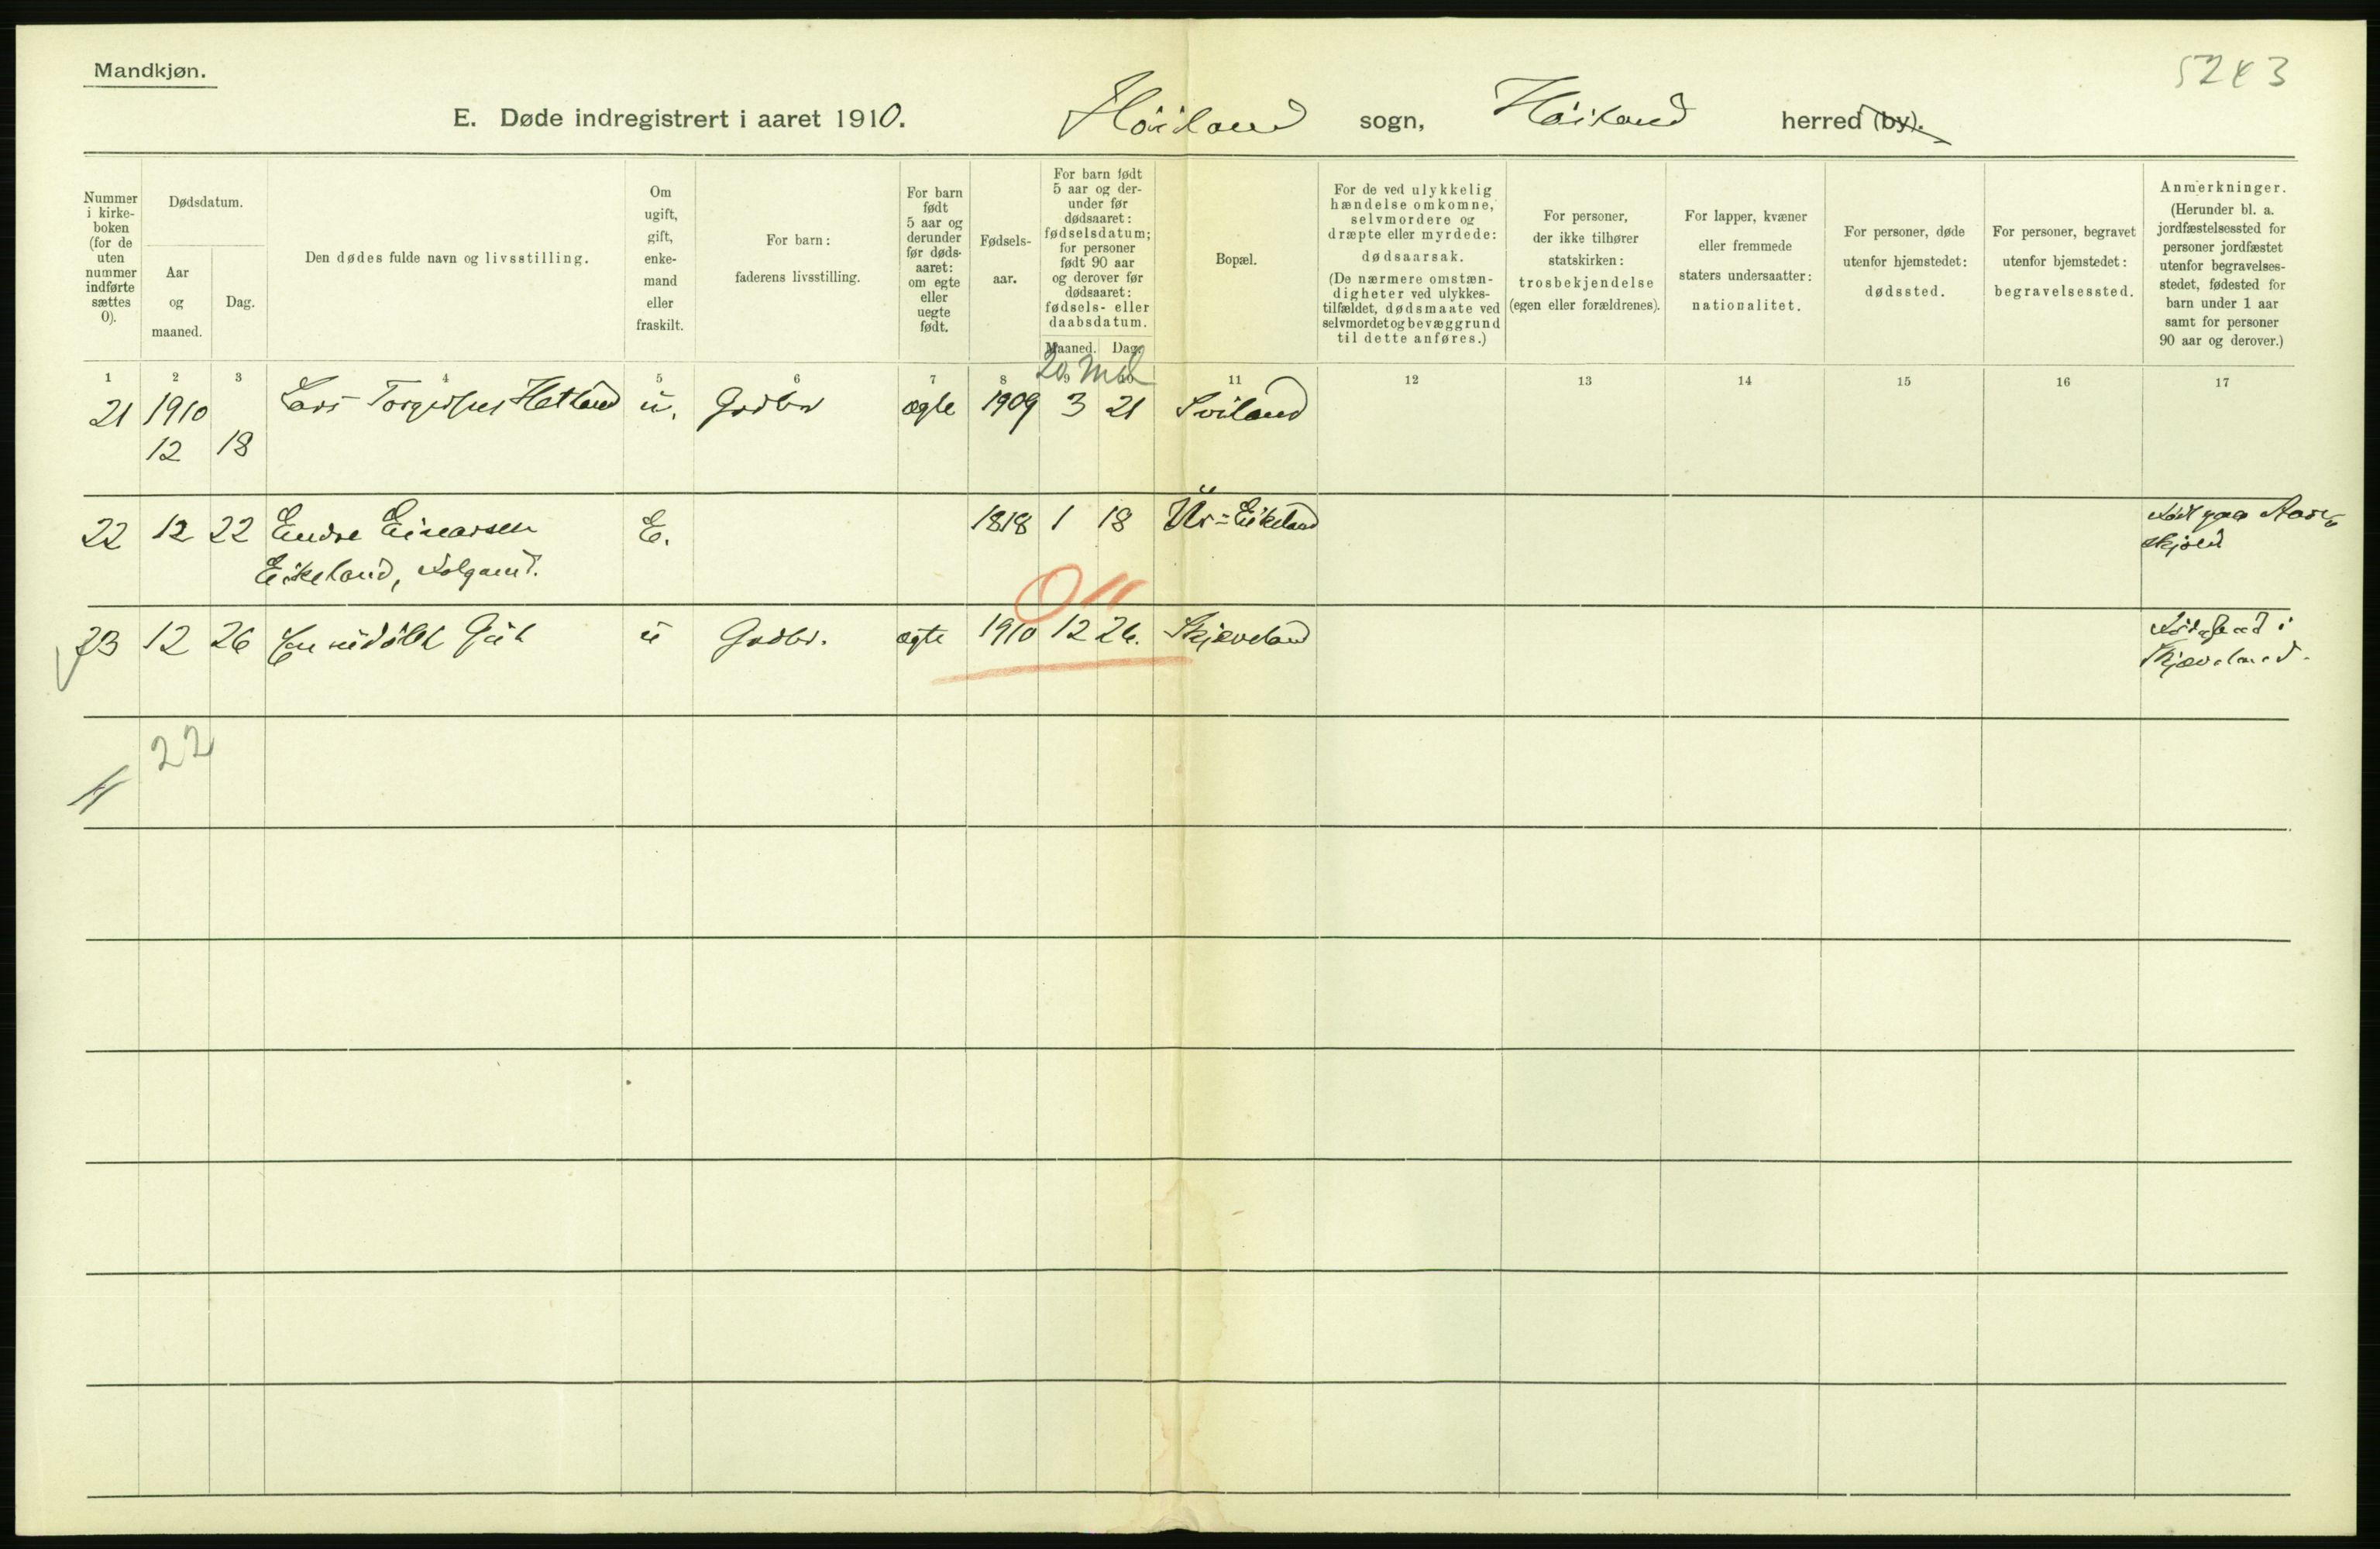 Mandkjøn.
5243
E. Døde indregistrert i aaret 1910. Høiland sogn, Høiland herred (by).
Nummer i kirke-boken (for de uten nummer indførte sættes 0).
Dødsdatum.
Aar og maaned.
Dag.
Den dødes fulde navn og livsstilling.
Om ugift, gift, enke-mand eller fraskilt.
For barn: faderens livsstilling.
For barn født 5 aar og derunder før døds-aaret: om egte eller uegte født.
Fødsels-aar.
For barn født 5 aar og der-under før dødsaaret: fødselsdatum; for personer født 90 aar og derover før dødsaaret: fødsels- eller daabsdatum.
Maaned. Dag.
Bopæl.
For de ved ulykkelig hændelse omkomne, selvmordere og dræpte eller myrdede: dødsaarsak. (De nærmere omstæn-digheter ved ulykkes-tilfældet, dødsmaate ved selvmordet og bevæggrund til dette anføres.)
For personer, der ikke tilhører statskirken: trosbekjendelse (egen eller forældrenes).
For lapper, kvæner eller fremmede staters undersaatter: nationalitet.
For personer, døde utenfor hjemstedet: dødssted.
For personer, begravet utenfor hjemstedet: begravelsessted.
Anmerkninger. (Herunder bl. a. jordfæstelsessted for personer jordfæstet utenfor begravelses-stedet, fødested for barn under 1 aar samt for personer 90 aar og derover.)
1 2 3 4 5 6 7 8 9 10 11 12 13 14 15 16 17
20 Md
21 1910 Lars Torgersen Hetland u. Grdbr ægte 1909 3 21 Sviland
12 18
22 12 22 Endre Einarsen E. 1818 1 18 Ur-Eikeland Født paa Aase-
Eikeland, Folgamd. skjold
23 12 26 En udøbt Gut u Grdbr. ægte 1910 12 26. Skjæveland Fødested i
Skjæveland.
22